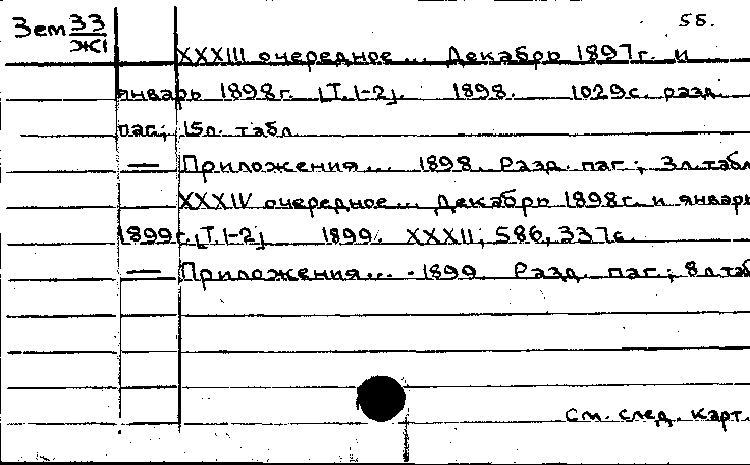 Зем 33 55.
Ж1
XXXIII очередное... Декабрь 1897г. и
январь 1898г. [Т.1-2]. 1898. 1029с. разд.
паг.; 15л. табл.
— Приложения... 1898. Разд. паг.; 3л.табл
XXXIV очередное... Декабрь 1898г. и январь
1899г. [Т.1-2] 1899. XXXII, 586, 337с.
— Приложения... 1899. Разд. паг.; 8л.таб
См. след. карт.